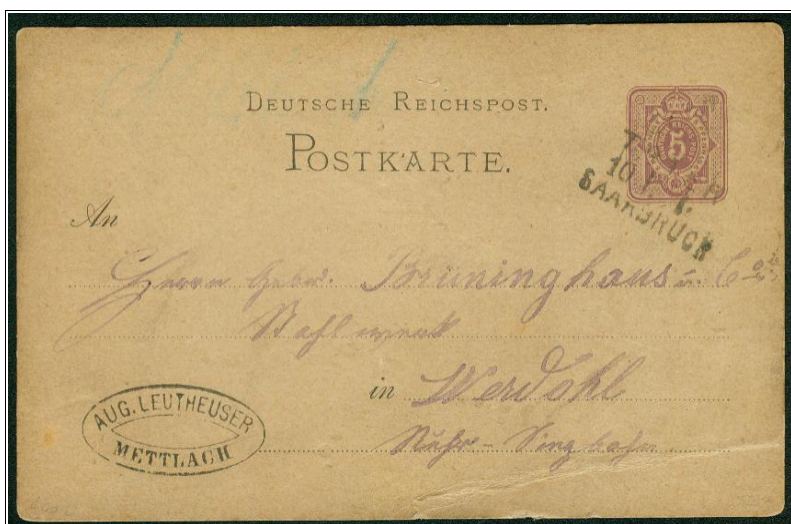 DEUTSCHE REICHSPOST.
POSTKARTE.
5
10
SAARBRÜCK
An
Herrn Gebr. Brüninghaus u. Co
Stahlwerk
in Werdohl
Ruhr-Sieg bahn
AUG. LEUTHEUSER
METTLACH